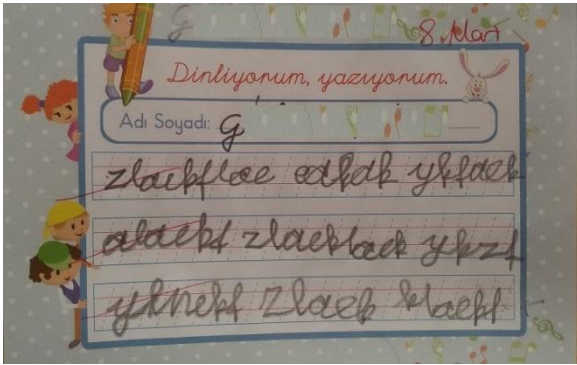 8 Mart
Dinliyorum, yazıyorum.
Adı Soyadı: G
zlaekflae edkdk ykfdek
aladekf zlaeklaek ykzf
yknekf zlaek klaekf